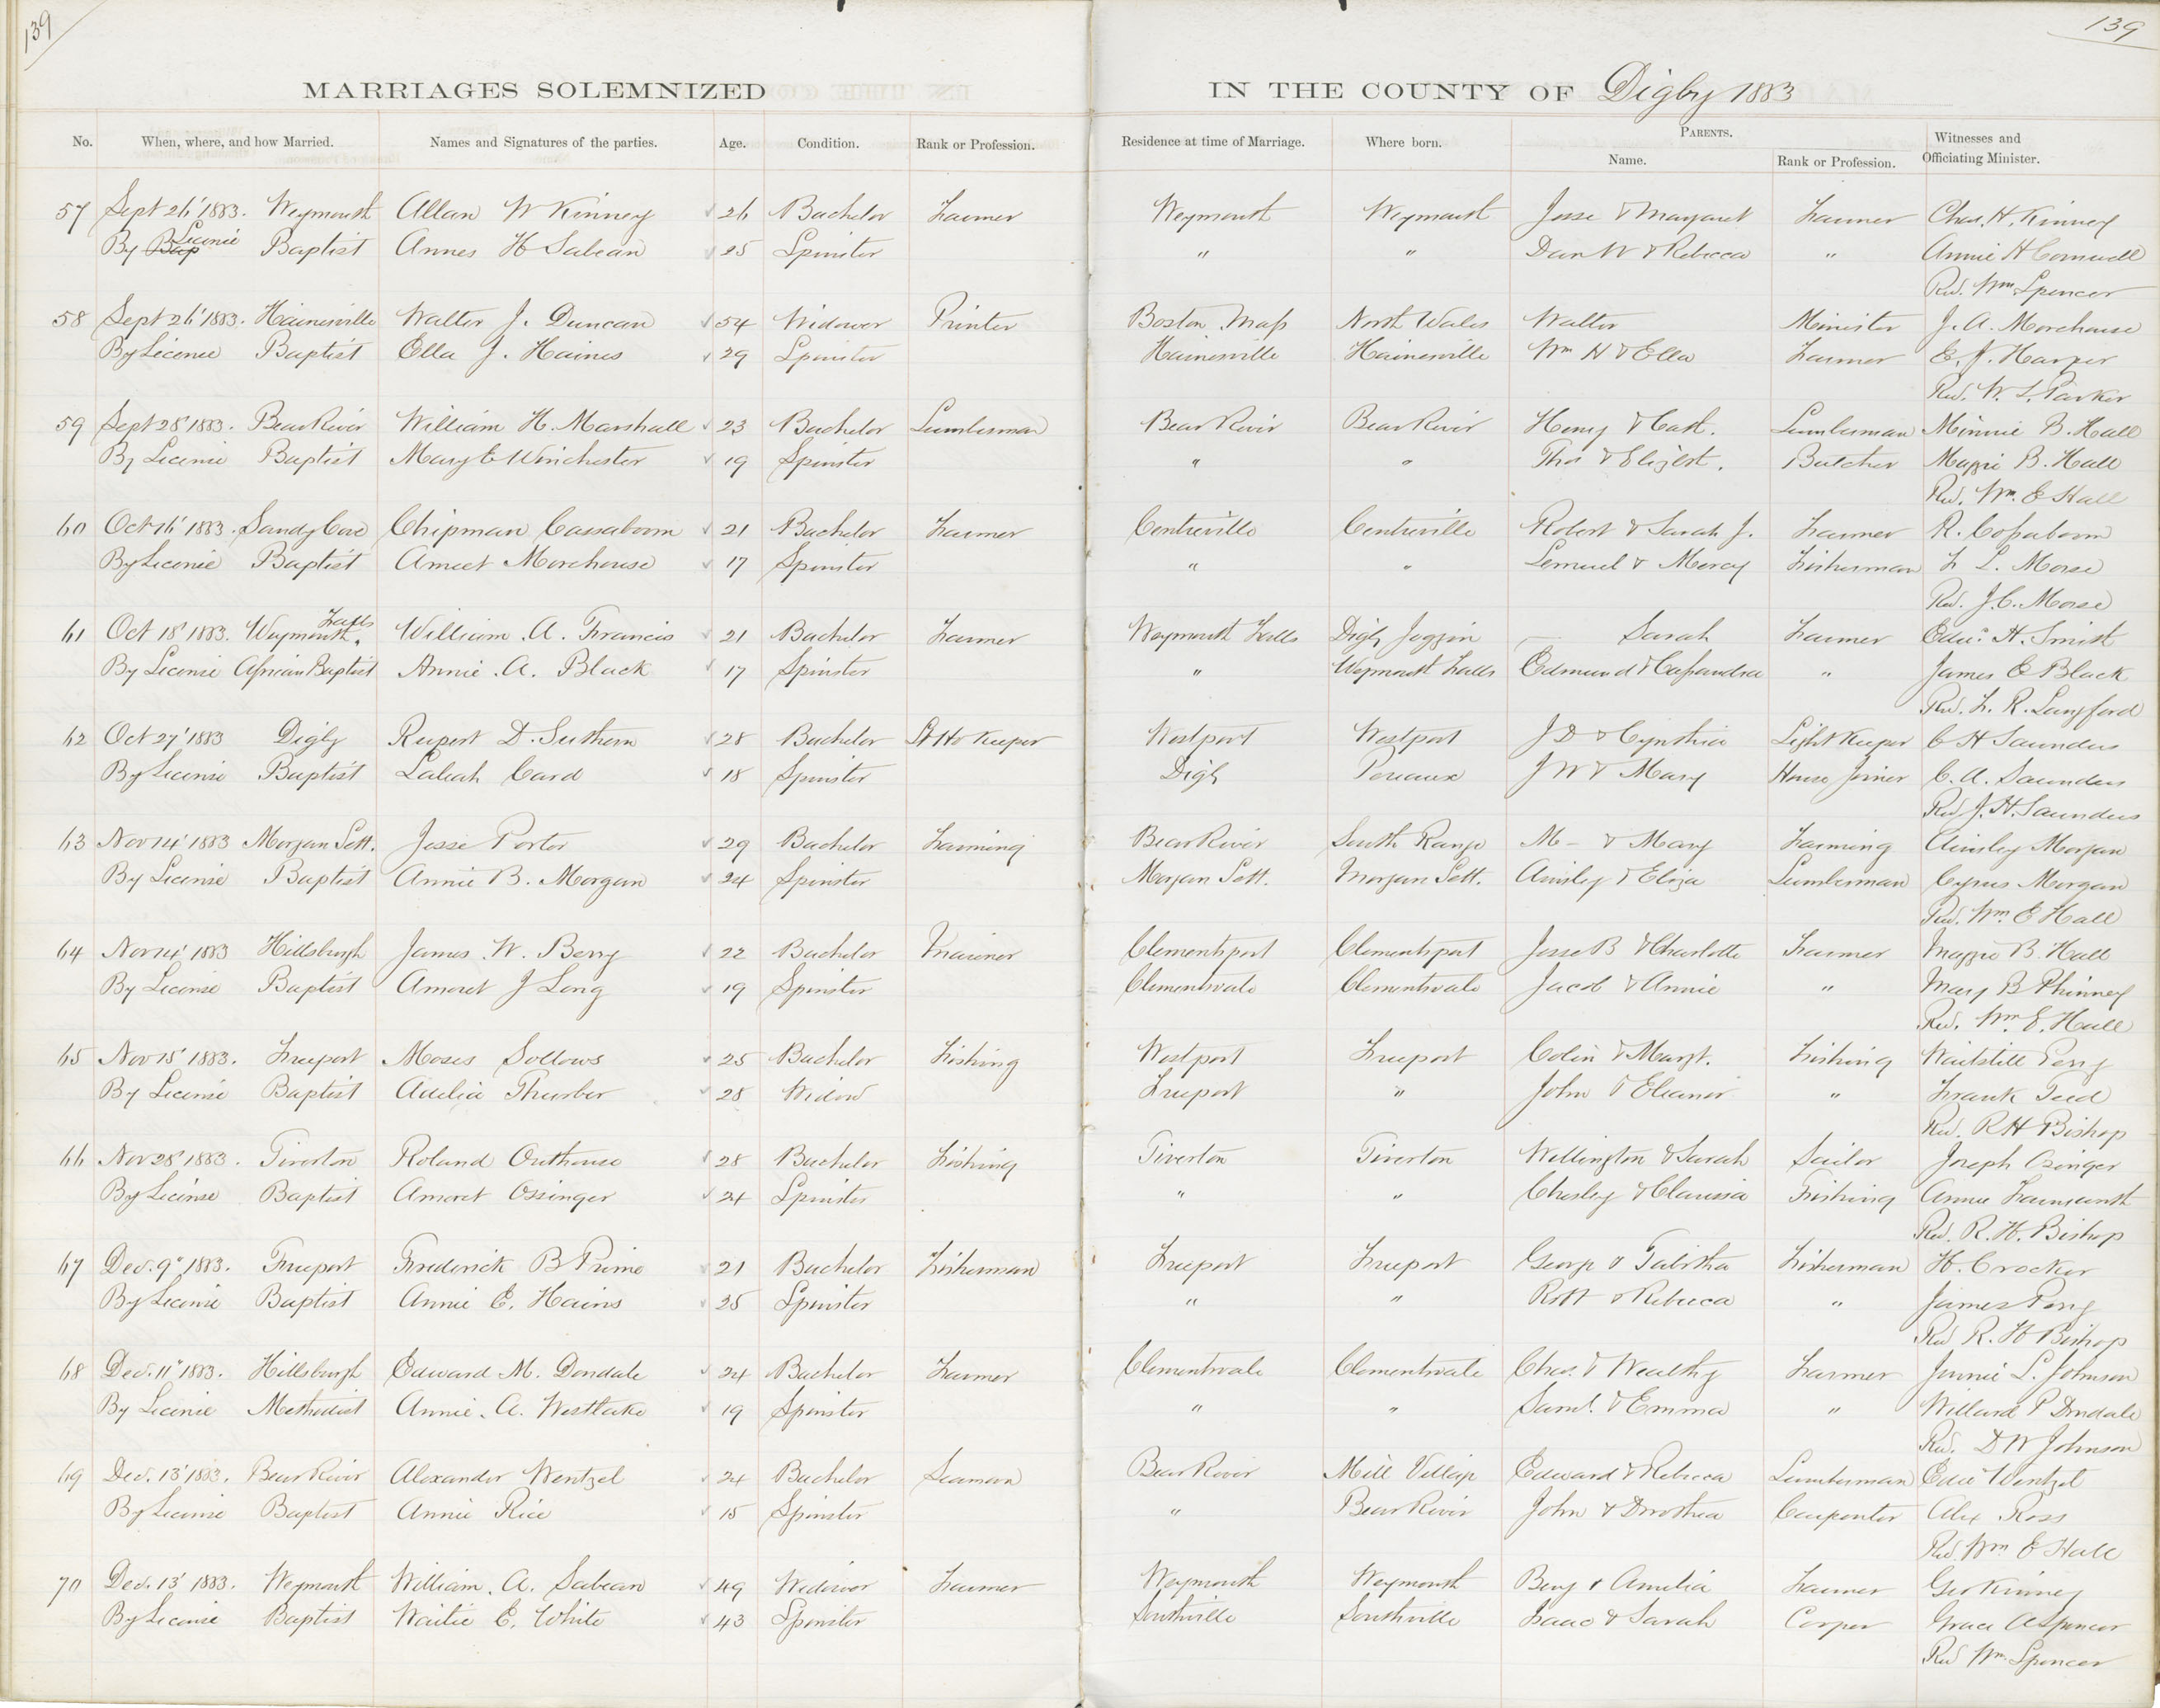 139
139
MARRIAGES SOLEMNIZED IN THE COUNTY OF Digby 1883
No. When, where, and how Married. Names and Signatures of the parties. Age. Condition. Rank or Profession. Residence at time of Marriage. Where born. PARENTS. Name. Rank or Profession. Witnesses and Officiating Minister.
57 Sept 26' 1883. Weymouth Allan W Kinney 26 Bachelor Farmer Weymouth Weymouth Jesse & Margaret Farmer Chas. H. Kinney
By Bap Licence Baptist Annes H Sabean 25 Spinster " " Dan W & Rebecca " Annie H Cornwell
Rev. Wm Spencer
58 Sept 26' 1883. Hainesville Walter J. Duncan 54 Widower Printer Boston Mass North Wales Walter Minister J. A. Morehouse
By Licence Baptist Ella J. Haines 29 Spinster Hainesville Hainesville Wm H & Ella Farmer E. J. Harper
Rev. W. L. Parker
59 Sept 28' 1883. Bear River William H. Marshall 23 Bachelor Lumberman Bear River Bear River Henry & Cath. Lumberman Minnie B. Hall
By License Baptist Mary E Winchester 19 Spinster " " Thos & Elizbt. Butcher Maggie B. Hall
Rev. Wm. E Hall
60 Oct 16' 1883. Sandy Cove Chipman Cassaboom 21 Bachelor Farmer Centreville Centreville Robert & Sarah J. Farmer R. Cassaboom
By Licence Baptist Ameet Morehouse 17 Spinster " " Lemuel & Mercy Fisherman F L. Morse
Rev. J. C. Morse
61 Oct 18' 1883. Weymouth Falls. William. A. Francis 21 Bachelor Farmer Weymouth Falls Digby Joggin — Sarah Farmer Edw. H. Smith
By License African Baptist Annie. A. Black 17 Spinster " Weymouth Falls Edmund & Cassandra " James E Black
Rev. F. R. Langford
62 Oct 27' 1883 Digby Rupert D. Suthern 28 Bachelor Lt Ho Keeper Westport Westport J D & Cynthia Light Keeper C H Saunders
By License Baptist Laleah Card 18 Spinster Digby Pereaux J W & Mary House Joiner C. A. Saunders
Rev J. H. Saunders
63 Nov 14' 1883 Morgan Sett. Jesse Porter 29 Bachelor Farming Bear River South Range M – & Mary Farming Ainsley Morgan
By License Baptist Annie B. Morgan 24 Spinster Morgan Sett. Morgan Sett. Ainsley & Eliza Lumberman Cyrus Morgan
Rev. Wm E Hall
64 Nov 14' 1883 Hillsburgh James. W. Berry 22 Bachelor Mariner Clementsport Clementsport Jesse B & Charlotte Farmer Maggie B. Hall
By License Baptist Amoret J Long 19 Spinster Clementsvale Clementsvale Jacob & Annie " Mary B Phinney
Rev. Wm. E. Hall
65 Nov 15' 1883. Freeport Moses Sollows 25 Bachelor Fishing Westport Freeport Colin & Margt. Fishing Waitstill Perry
By License Baptist Adelia Thurber 28 Widow Freeport " John & Eleanor " Frank Teed
Rev. R H Bishop
66 Nov 28' 1883. Tiverton Roland Outhouse 28 Bachelor Fishing Tiverton Tiverton Wellington & Sarah Sailor Joseph Osinger
By License Baptist Amoret Ossinger 24 Spinster " " Chesley & Clarissa Fishing Annie Farnsworth
Rev. R. H. Bishop
67 Dec. 9" 1883. Freeport Frederick B Prime 21 Bachelor Fisherman Freeport Freeport George & Tabitha Fisherman H. Crocker
By Licence Baptist Annie E. Hains 25 Spinster " " Robt & Rebecca " James Perry
Rev R. H Bishop
68 Dec. 11" 1883. Hillsburgh Edward M. Dondale 24 Bachelor Farmer Clementsvale Clementsvale Chas. & Wealthy Farmer Jennie L. Johnson
By Licence Methodist Annie. A. Westlake 19 Spinster " " Saml. & Emma " Willard P Dondale
Rev. D W Johnson
69 Dec. 13' 1883. Bear River Alexander Wentzel 24 Bachelor Seaman Bear River Mill Village Edward & Rebecca Lumberman Edw Wentzel
By Licence Baptist Annie Rice 15 Spinster " Bear River John & Dorothea Carpenter Alex Ross
Rev. Wm E Hall
70 Dec. 13' 1883. Weymouth William. A. Sabean 49 Widower Farmer Weymouth Weymouth Benj & Amelia Farmer Geo Kinney
By Licence Baptist Waitie E. White 43 Spinster Southville Southville Isaac & Sarah Cooper Grace A Spencer
Rev Wm. Spencer